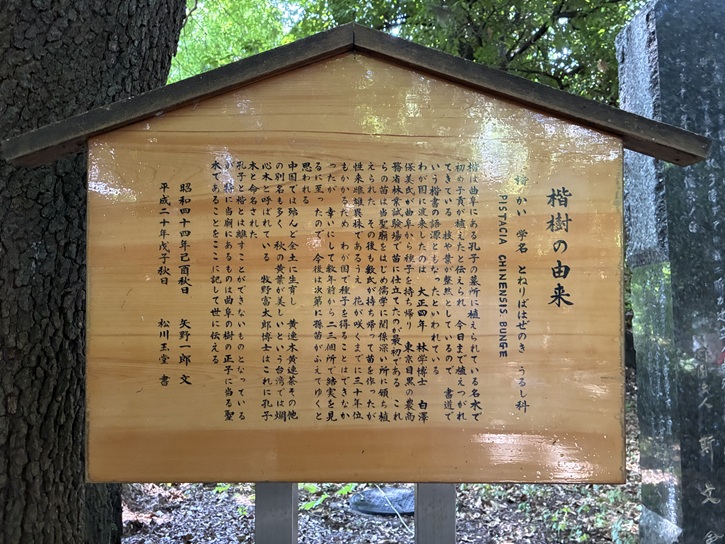 楷樹の由来
楷 かい 学名 とねりばはぜのき うるし科
PISTACIA CHINENSIS. BUNGE
楷は曲阜にある孔子の墓所に植えられている名木で
初め子貢が植えたと伝えられ 今日まで植えつがれ
てきている 枝や葉が整然としているので 書道で
いう楷書の語源ともなったといわれている
わが国に渡来したのは 大正四年 林学博士 白澤
保美氏が曲阜から種子を持ち帰り 東京目黒の農商
務省林業試験場で苗に仕立てたのが最初である これ
らの苗は当聖廟をはじめ儒学に関係深い所に頒ち植
えられた その後も数氏が持ち帰って苗を作ったが
性来雌雄異株であるうえ 花が咲くまでに三十年位
もかかるため わが国で種子を得ることはできなか
ったが 幸いにして数年前から二三個所で結実を見
るに至ったので 今後は次第に孫苗がふえてゆくと
思われる
中国では殆んど全土に生育し 黄連木黄連茶その他
の別名も多く 秋の黄葉が美しいという台湾では爛
心木と呼ばれている 牧野富太郎博士はこれに孔子
木と命名された
孔子と楷とは離すことができないものとなっている
が 特に当廟にあるものは曲阜の樹の正子に当る聖
木であることをここに記して世に伝える
昭和四十四年己酉秋日 矢野一郎 文
平成二十年戊子秋日 松川玉堂 書
人
斯文